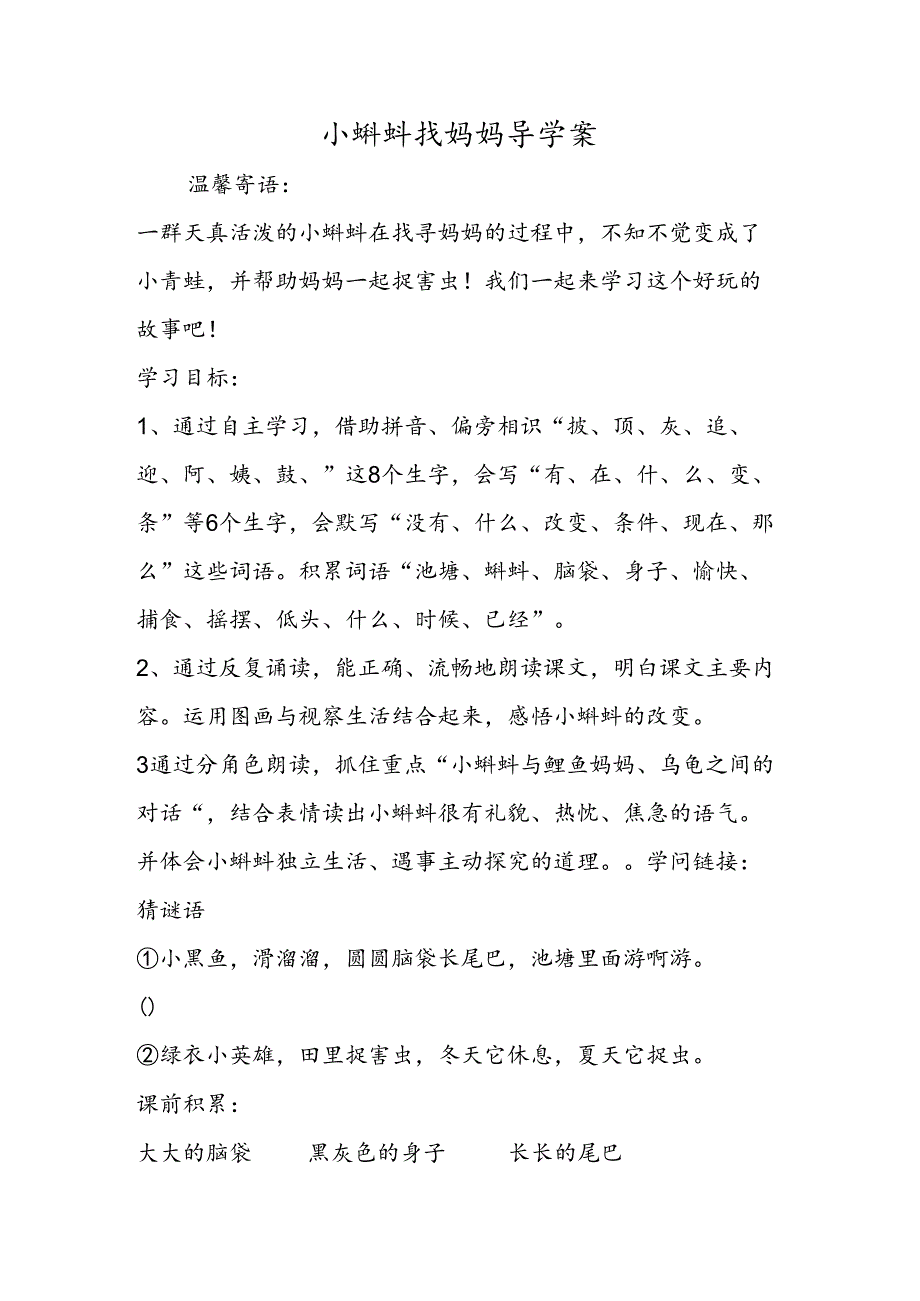 小蝌蚪找妈妈导学案
温馨寄语：
一群天真活泼的小蝌蚪在找寻妈妈的过程中，不知不觉变成了
小青蛙，并帮助妈妈一起捉害虫！我们一起来学习这个好玩的
故事吧！
学习目标：
1、通过自主学习，借助拼音、偏旁相识“披、顶、灰、追、
迎、阿、姨、鼓、”这8个生字，会写“有、在、什、么、变、
条”等6个生字，会默写“没有、什么、改变、条件、现在、那
么”这些词语。积累词语“池塘、蝌蚪、脑袋、身子、愉快、
捕食、摇摆、低头、什么、时候、已经”。
2、通过反复诵读，能正确、流畅地朗读课文，明白课文主要内
容。运用图画与视察生活结合起来，感悟小蝌蚪的改变。
3通过分角色朗读，抓住重点“小蝌蚪与鲤鱼妈妈、乌龟之间的
对话“，结合表情读出小蝌蚪很有礼貌、热忱、焦急的语气。
并体会小蝌蚪独立生活、遇事主动探究的道理。。学问链接：
猜谜语
①小黑鱼，滑溜溜，圆圆脑袋长尾巴，池塘里面游啊游。
()
②绿衣小英雄，田里捉害虫，冬天它休息，夏天它捉虫。
课前积累：
大大的脑袋 黑灰色的身子 长长的尾巴